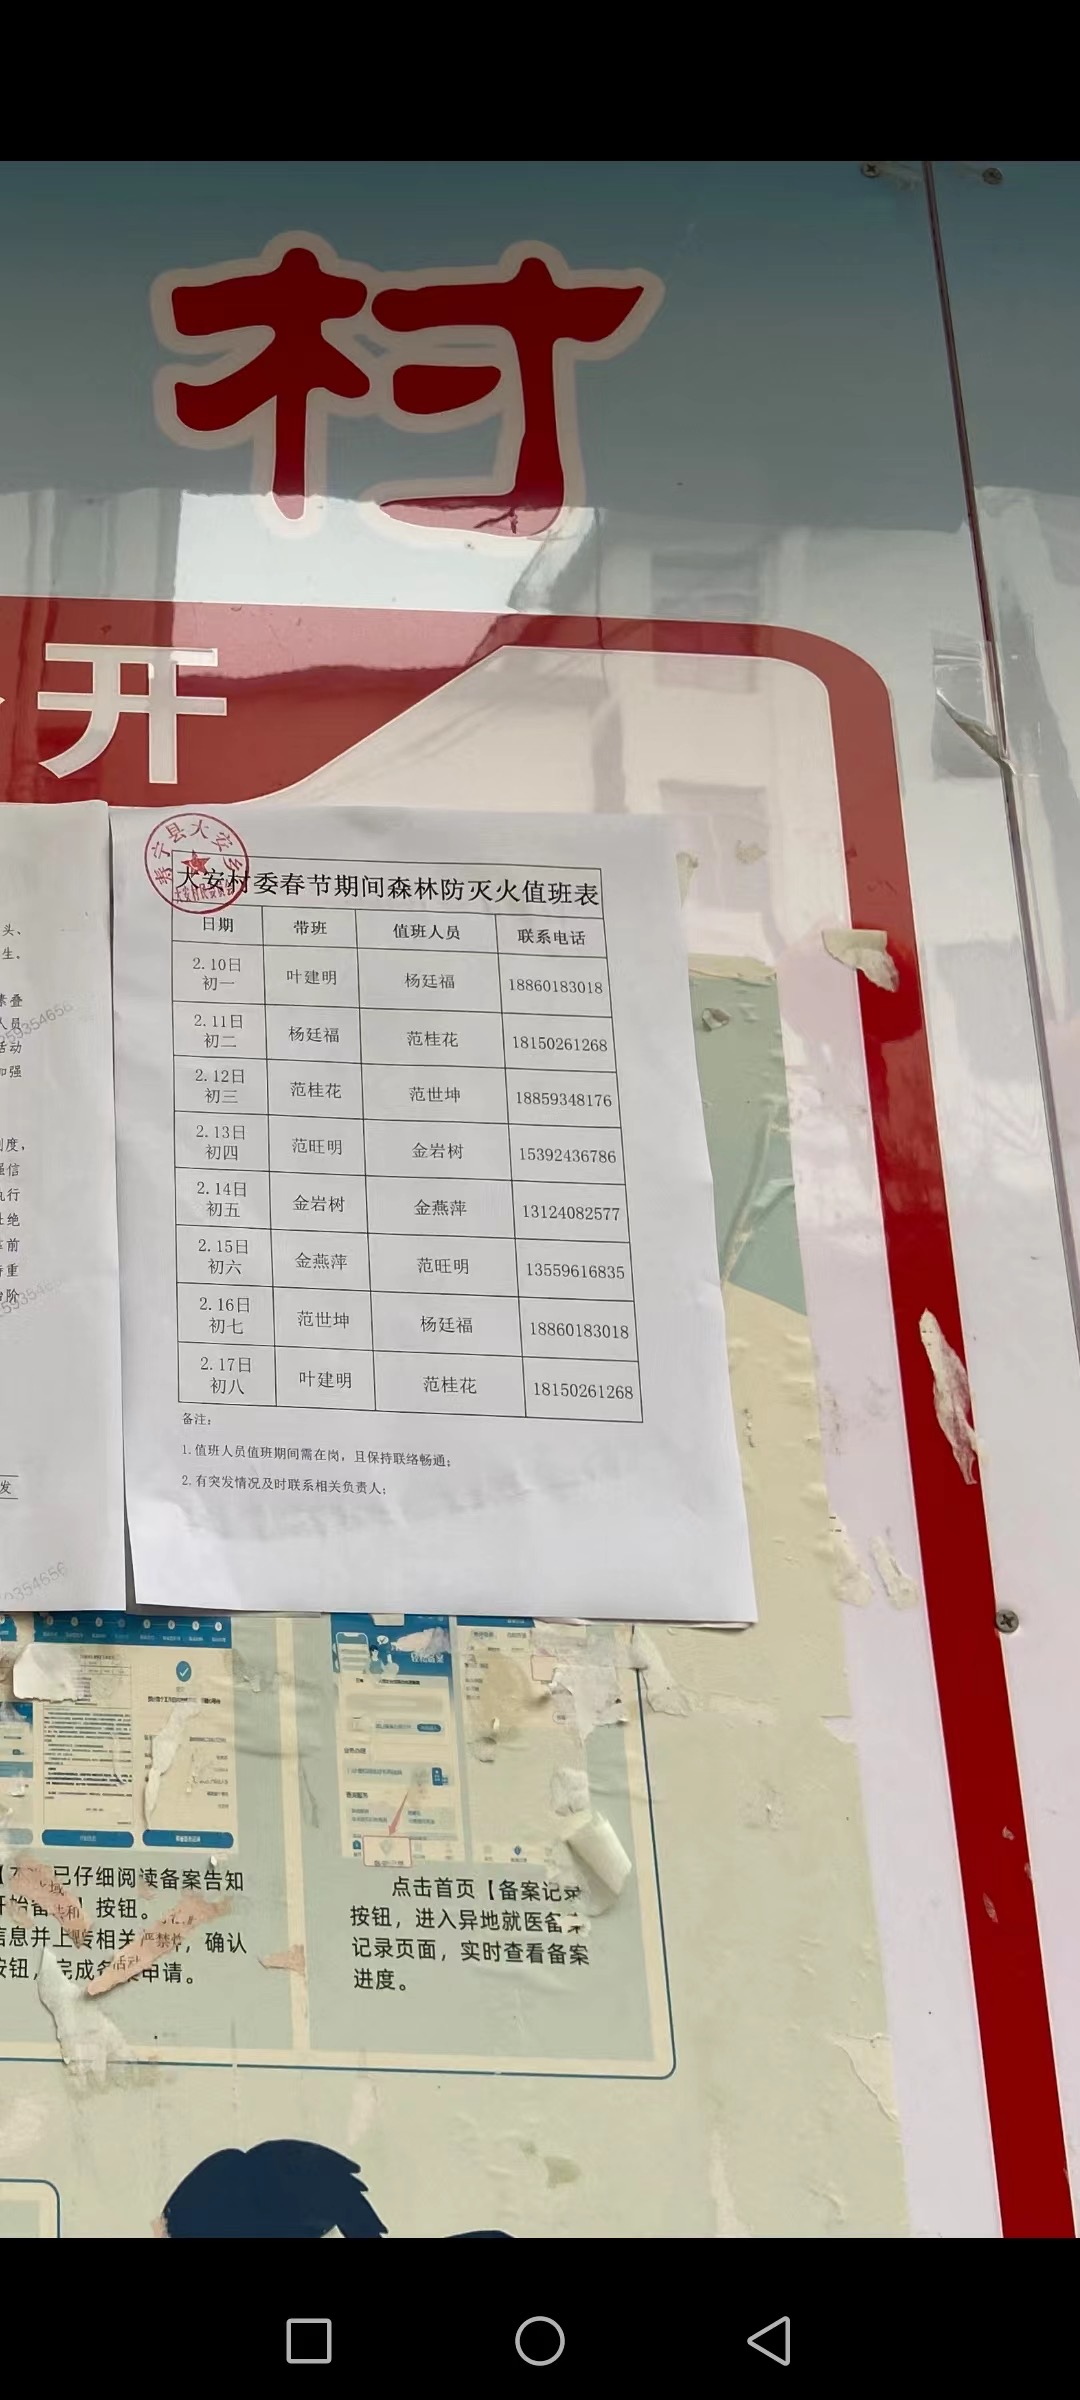 村
开
寿宁县大安乡
大安村委春节期间森林防灭火值班表
日期 带班 值班人员 联系电话
2.10日 初一 叶建明 杨廷福 18860183018
2.11日 初二 杨廷福 范桂花 18150261268
2.12日 初三 范桂花 范世坤 18859348176
2.13日 初四 范旺明 金岩树 15392436786
2.14日 初五 金岩树 金燕萍 13124082577
2.15日 初六 金燕萍 范旺明 13559616835
2.16日 初七 范世坤 杨廷福 18860183018
2.17日 初八 叶建明 范桂花 18150261268
备注：
1.值班人员值班期间需在岗，且保持联络畅通；
2.有突发情况及时联系相关负责人；
头、
生、
叠
人员
活动
加强
制度，
强信
执行
杜绝
前
重
阶
发
已仔细阅读备案告知
按钮。
信息并上传相关 ，确认
按钮，完成 申请。
点击首页【备案记录
按钮，进入异地就医备案
记录页面，实时查看备案
进度。